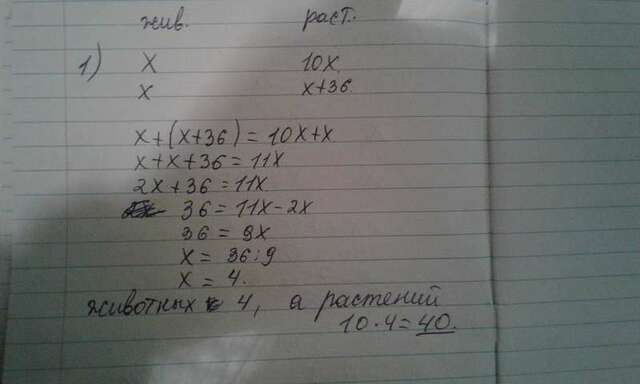 жив. раст.
1) x 10x
x x+36
x+(x+36)=10x+x
x+x+36=11x
2x+36=11x
36=11x-2x
36=9x
x=36:9
x=4.
животных 4, а растений
10·4=40.